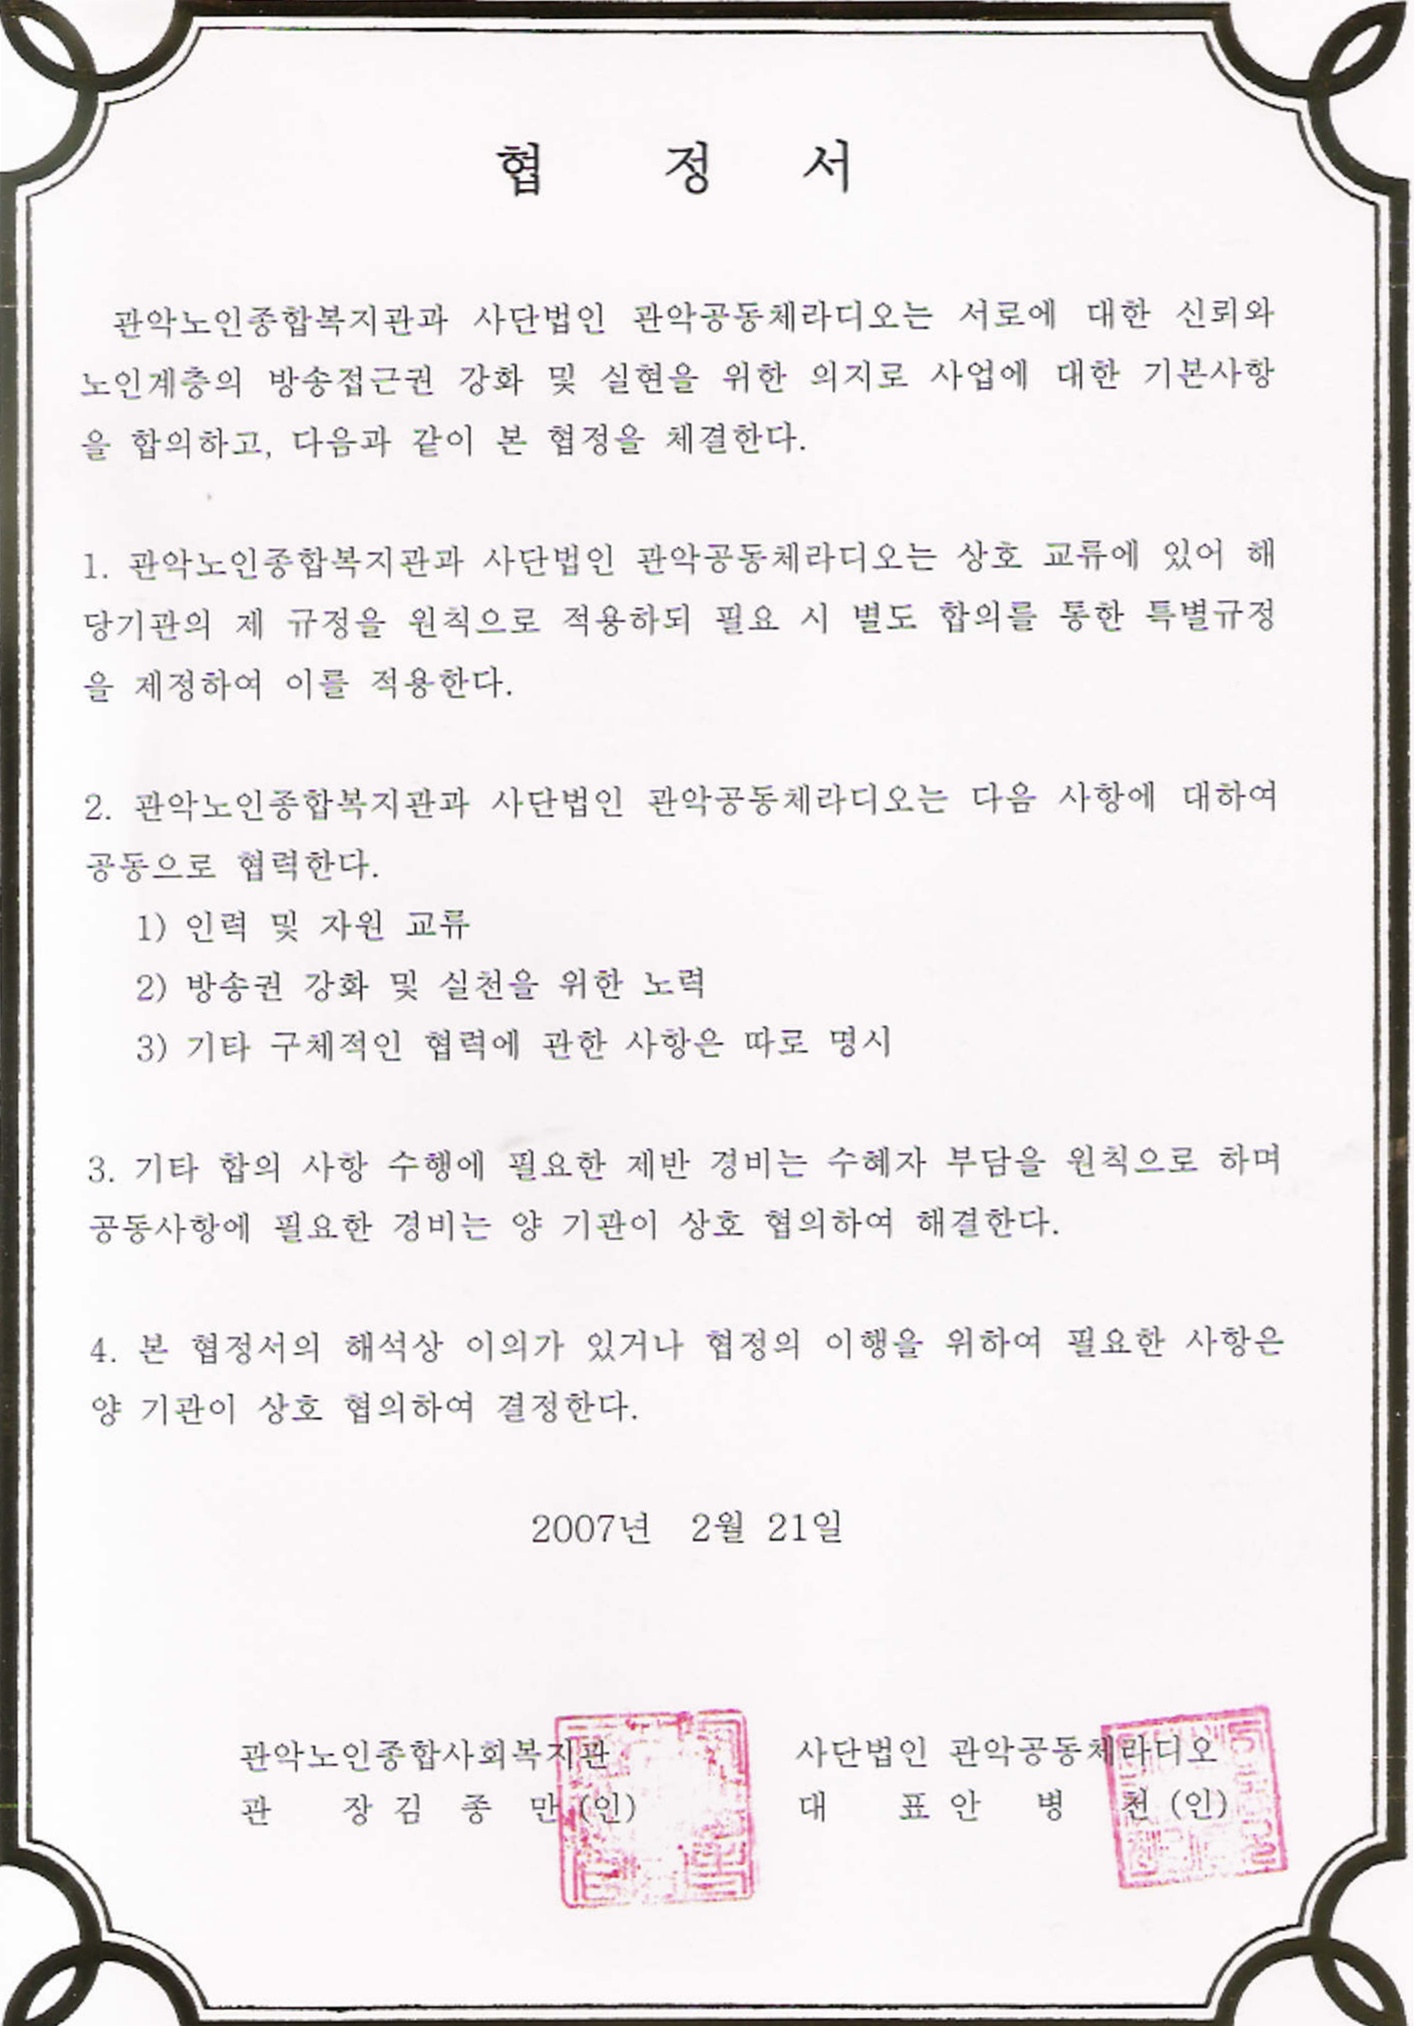 협 정 서
관악노인종합복지관과 사단법인 관악공동체라디오는 서로에 대한 신뢰와
노인계층의 방송접근권 강화 및 실현을 위한 의지로 사업에 대한 기본사항
을 합의하고, 다음과 같이 본 협정을 체결한다.
1. 관악노인종합복지관과 사단법인 관악공동체라디오는 상호 교류에 있어 해
당기관의 제 규정을 원칙으로 적용하되 필요 시 별도 합의를 통한 특별규정
을 제정하여 이를 적용한다.
2. 관악노인종합복지관과 사단법인 관악공동체라디오는 다음 사항에 대하여
공동으로 협력한다.
1) 인력 및 자원 교류
2) 방송권 강화 및 실천을 위한 노력
3) 기타 구체적인 협력에 관한 사항은 따로 명시
3. 기타 합의 사항 수행에 필요한 제반 경비는 수혜자 부담을 원칙으로 하며
공동사항에 필요한 경비는 양 기관이 상호 협의하여 해결한다.
4. 본 협정서의 해석상 이의가 있거나 협정의 이행을 위하여 필요한 사항은
양 기관이 상호 협의하여 결정한다.
2007년 2월 21일
관악노인종합사회복지관 사단법인 관악공동체라디오
관 장 김 종 만 (인) 대 표 안 병 천 (인)